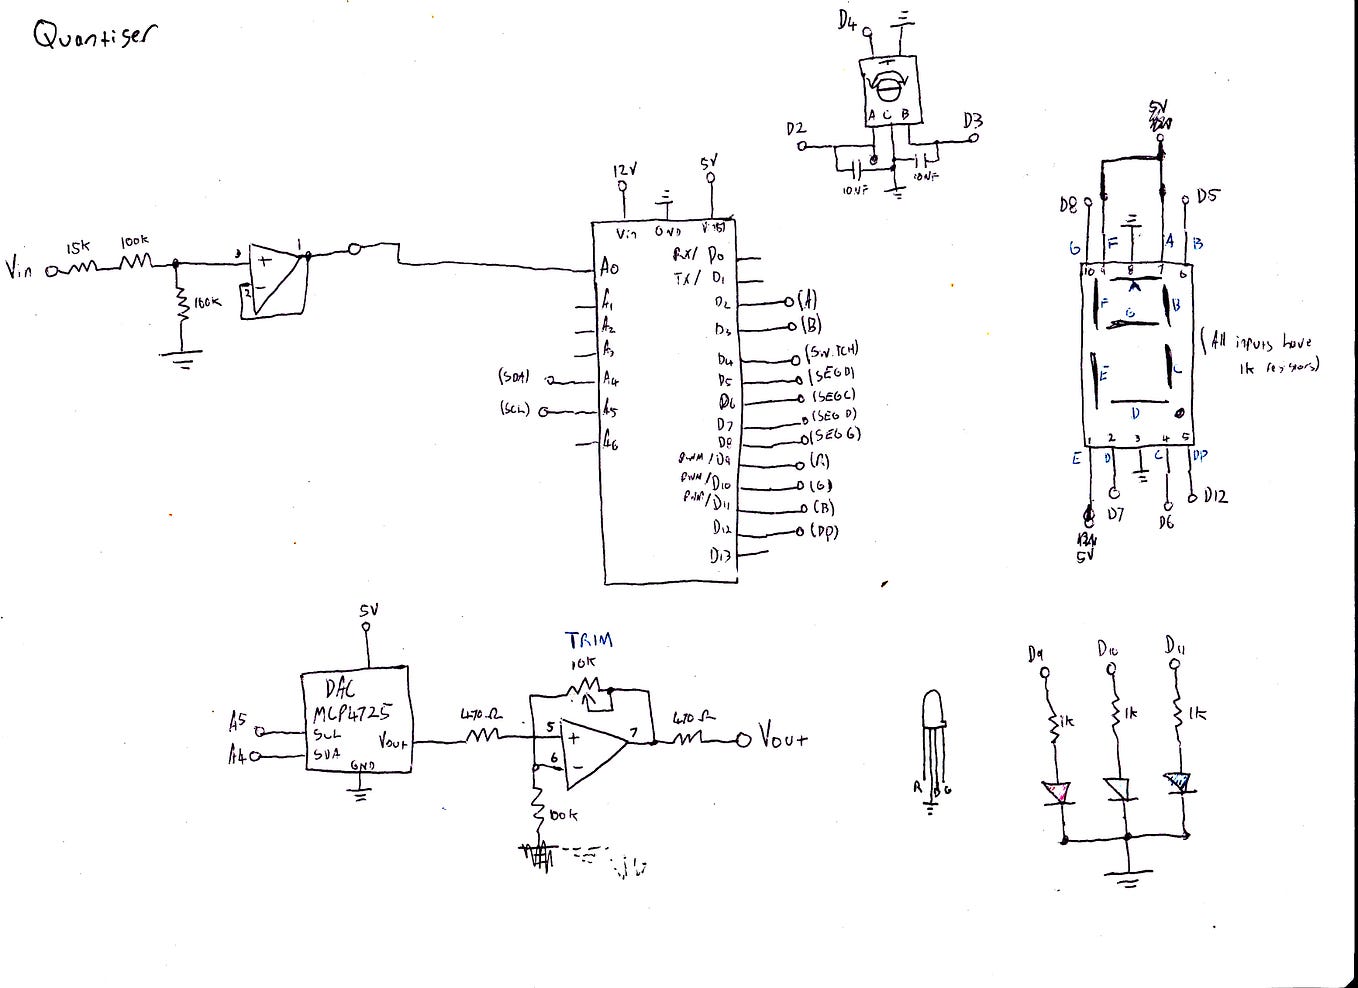 Quantiser
D4
A C B
D2
D3
10NF
10NF
12V
5V
Vin
GND
15k
100k
Vin
3
+
1
2
-
100k
A0
A1
A2
A3
(SDA)
A4
(SCL)
A5
A6
RX/ D0
TX/ D1
D2
(A)
D3
(B)
D4
D5
D6
(SEG C)
D7
(SEG D)
D8
(SEG G)
PWM/D9
(R)
PWM/D10
(G)
PWM/D11
(B)
D12
(DP)
D13
5V
D8
D5
G
F
A
B
10 9 8 7 6
A
F
B
G
E
C
D
1 2 3 4 5
E
D
C
DP
D7
D6
D12
5V
(All inputs have
1k resistors)
5V
DAC
MCP4725
A5
SCL
A4
SDA
Vout
GND
470Ω
TRIM
10k
5
+
6
-
7
100k
470Ω
Vout
R
B
G
D9
D10
D11
1k
1k
1k